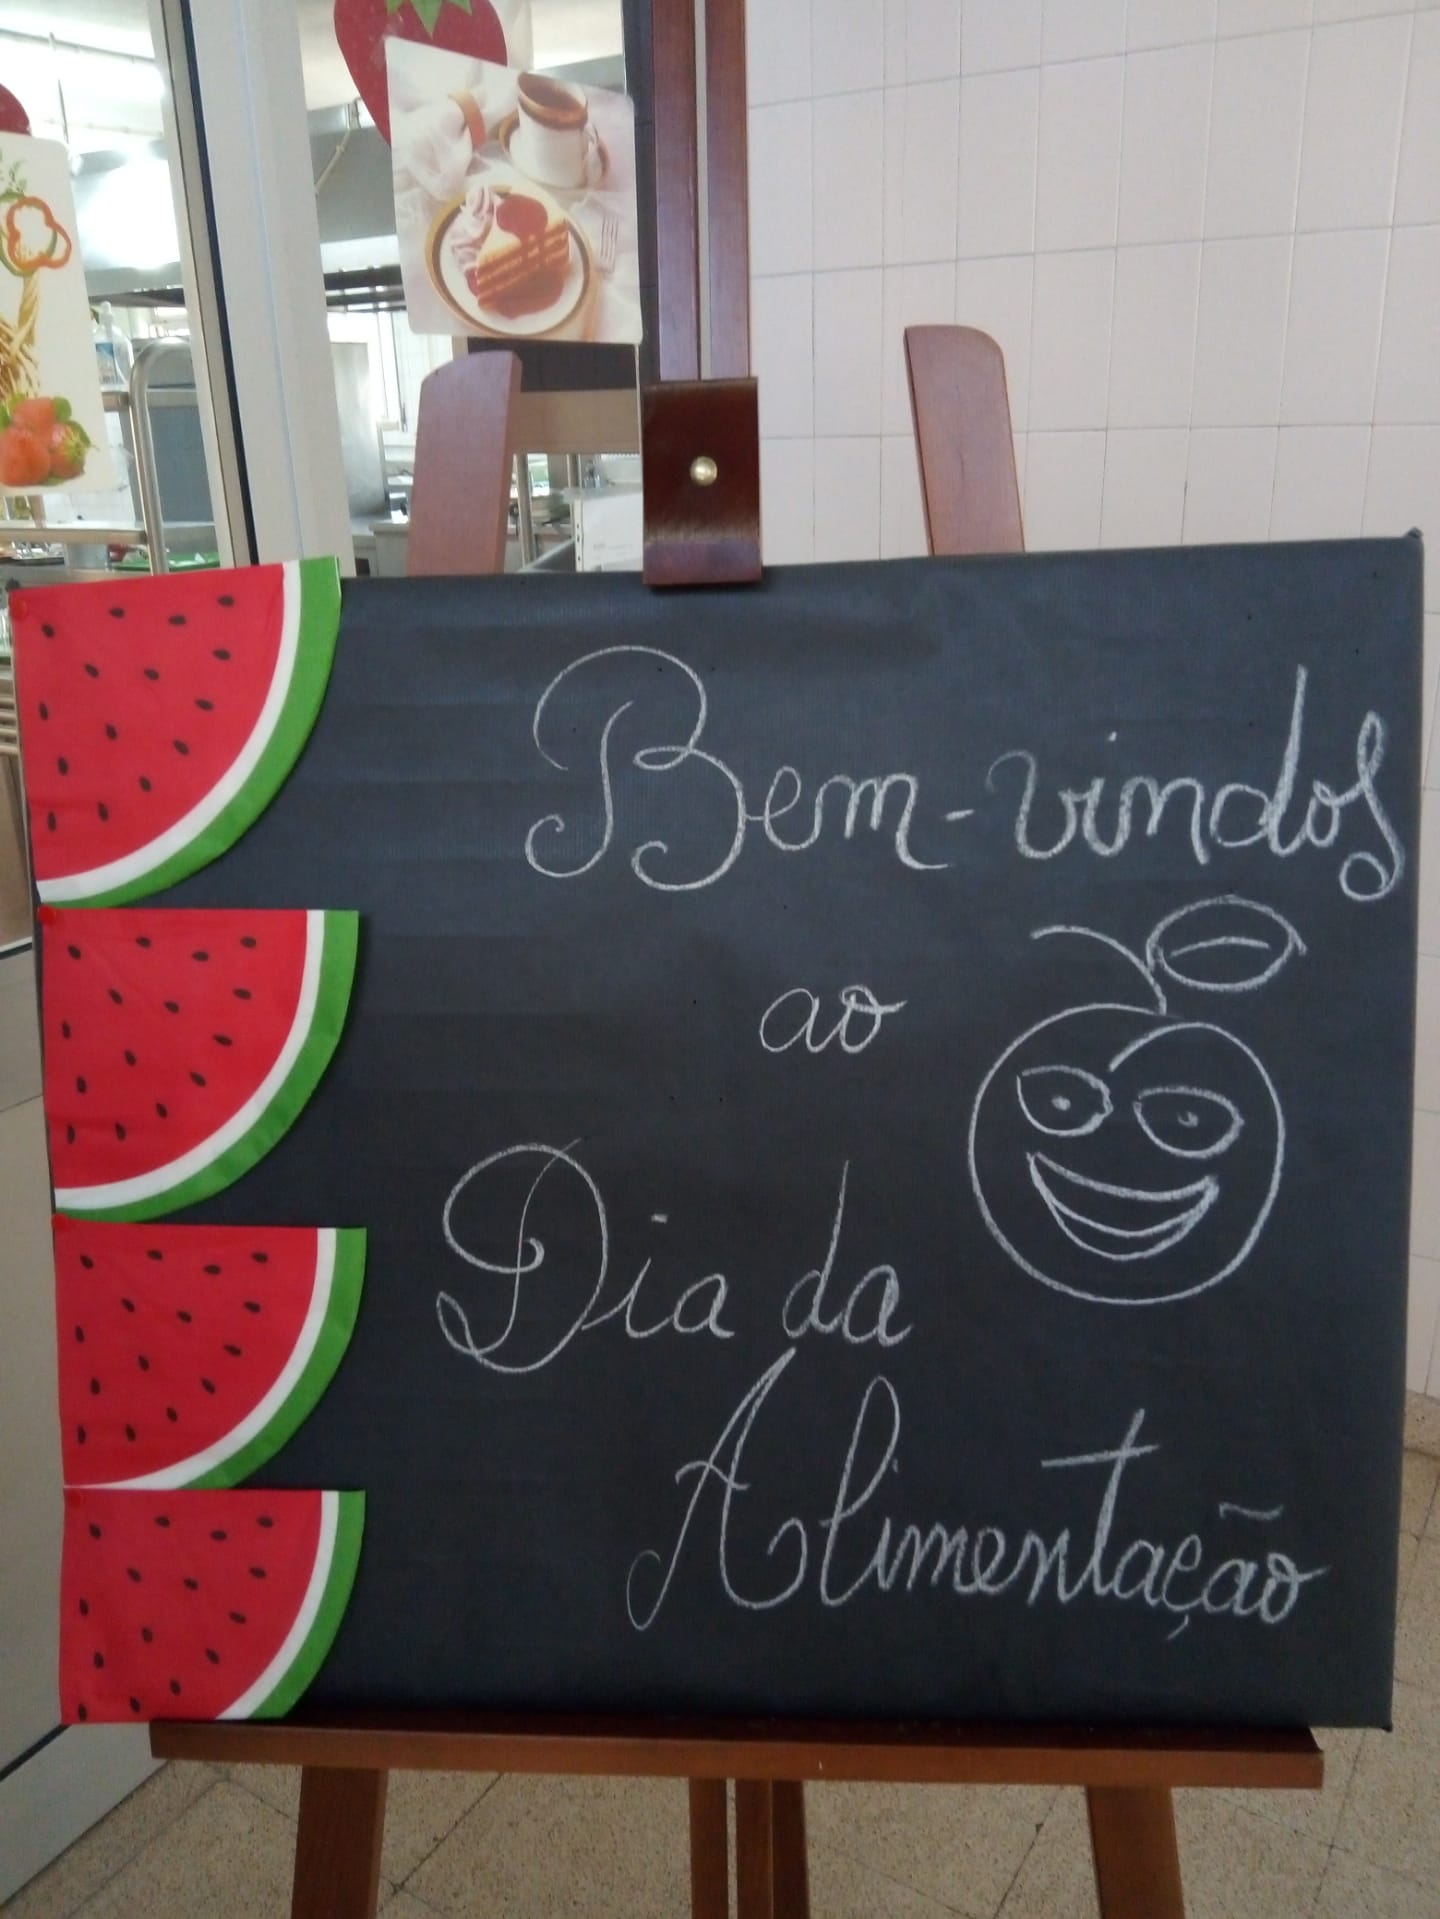 Bem-vindos
ao
Dia da
Alimentação